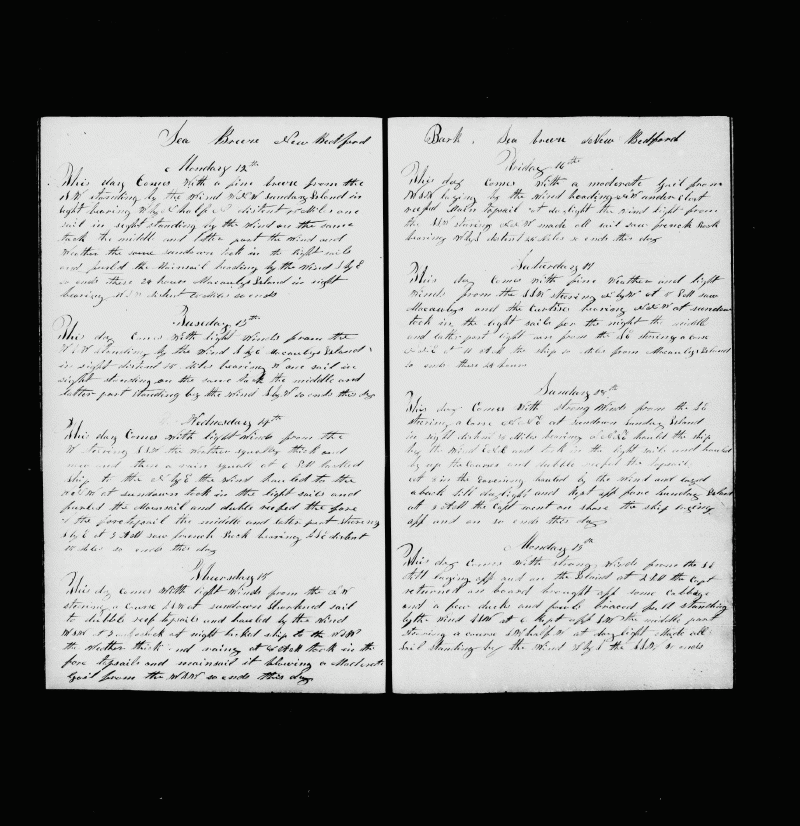 Sea Breeze New Bedford
Monday 12th
This day Comes With a fine breeze from the
S W standing by the Wind W N W Sunday Island in
sight bearing W by N half N distent 25 Miles one
sail in sight standing by the Wind on the same
tack the middle and latter part the Wind and
Weather the same sundown took in the light sails
and furld the Mainsail heading by the Wind S by E
so ends these 24 hours Macaulys Island in sight
bearing distent 20 Miles so ends
Tuesday 13th
This day Comes With light Winds from the
standing by the Wind S by E Macaulys Island
in sight distent 15 Miles bearing one sail in
sight standing on the same tack the middle and
latter part standing by the Wind S by W so ends this day
Wednesday 14th
This day Comes With light Winds from the
W stering S S W the Weather squally thick and
now and then a rain squall at 6 P M tacked
ship to the N by E the Wind hauled to the
N W at sundown took in the light sails and
furled the Mainsail and duble reefed the fore
& the foretopsail the middle and later part stering
S by E at 5 A M saw french Rock bearing S S E distent
15 Miles so ends this day
Thursday 15
This day Comes With light Winds from the N W
stering a Course S S W at sundown Shortend sail
to dubble reef topsails and hauled by the Wind
W S W at 2 oclock at night ticked ship to the
the Weather thick and rainy at 4 A M took in the
fore topsails and mainsail it blowing a Moderate
Gail from the W S W so ends this day
Bark Sea breeze New Bedford
Friday 16th
This day Comes With a moderate Gail from
W S W laying by the Wind heading N W under Close
reefed Main topsail at daylight the wind light from
the S W stering N N W made all sail saw french Rock
bearing W by S distent 25 Miles so ends this day
Saturday 17
This day Comes With fine Weather and light
Winds from the S S W stering N by W at 5 P M saw
Macaulys and the Curtise bearing N N W at sundown
took in the light sails for the night the middle
and later part light airs from the S E stering a corse
at 11 A M the ship 10 Miles from Macaulys Island
so ends these 24 hours
Sunday 18th
This day Comes With strong Winds from the S E
stering a Corse N N E at sundown Sunday Island
in sight distent Miles bearing N N E hauld the ship
by the Wind E N E and took in the light sails and hauled
up the Courses and dubble reefed the topsails
at in the Evening hauled by the wind and layed
aback till daylight and kept off fore Sunday Island
at 8 A M the Capt went on shore the ship laying
off and on so ends this day
Monday 19th
This day Comes With strong Winds from the S E
still laying off and on the Island at 2 P M the Capt
returned on board brought off some Cabbage
and a few ducks and fowls braced full standing
by the Wind S S W at 6 kept off S W the middle part
stering a course S W half W at daylight Made all
Sail standing by the Wind the S S W so ends